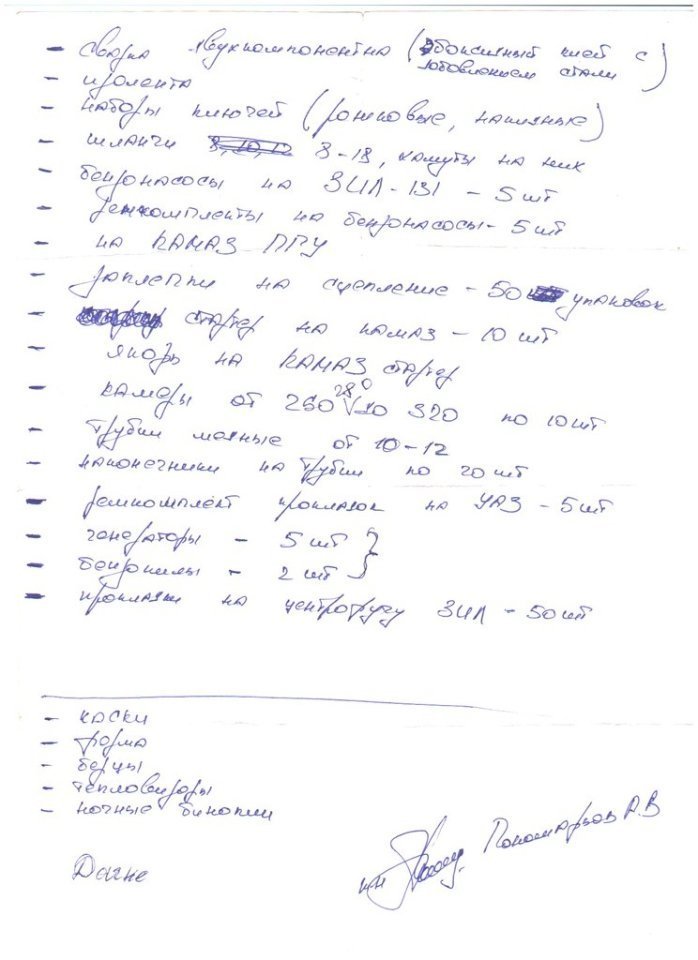 - сварка двухкомпонентна (эбоксидный клей с
добовлением стали)
- изолента
- наборы ключей (рожковые, накидные)
- шланги 8, 10, 12 8-18, хамуты на них
- бензонасосы на ЗИЛ-131 - 5 шт
- ремкомплекты на бензонасосы - 5 шт
- на КАМАЗ ПГУ
- заклепки на сцепление - 50 упаковок
- стартер на камаз - 10 шт
- якорь на КАМАЗ стартер
- камеры от 260 280 до 320 по 10 шт
- трубки медные от 10-12
- наконечники на трубки по 20 шт
- ремкомплект прокладок на УАЗ - 5 шт
- генераторы - 5 шт }
- бензопилы - 2 шт }
- прокладки на центрофугу ЗИЛ - 50 шт
- каски
- форма
- берцы
- тепловизоры
- ночные бинокли
Пономарьов А.В